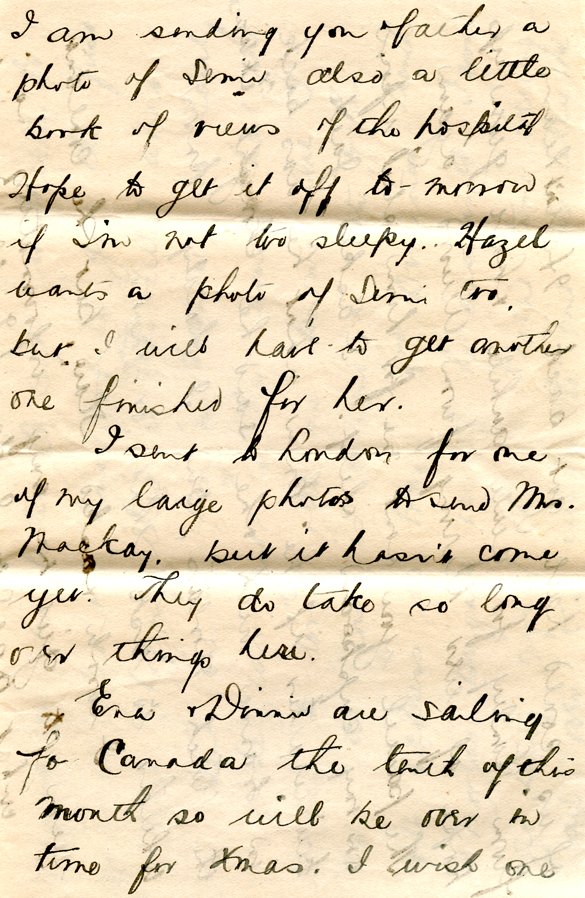 I am sending you father a
photo of also a little
book of views of the hospital
Hope to get it off to-morrow
if I'm not too sleepy. Hazel
wants a photo of too,
but I will have to get another
one finished for her.
I sent to London for one
of my large photos to send Mrs.
Mackay, but it hasn't come
yet. They do take so long
over things here.
Ena & are sailing
fo Canada the tenth of this
month so will be over in
time for Xmas. I wish one